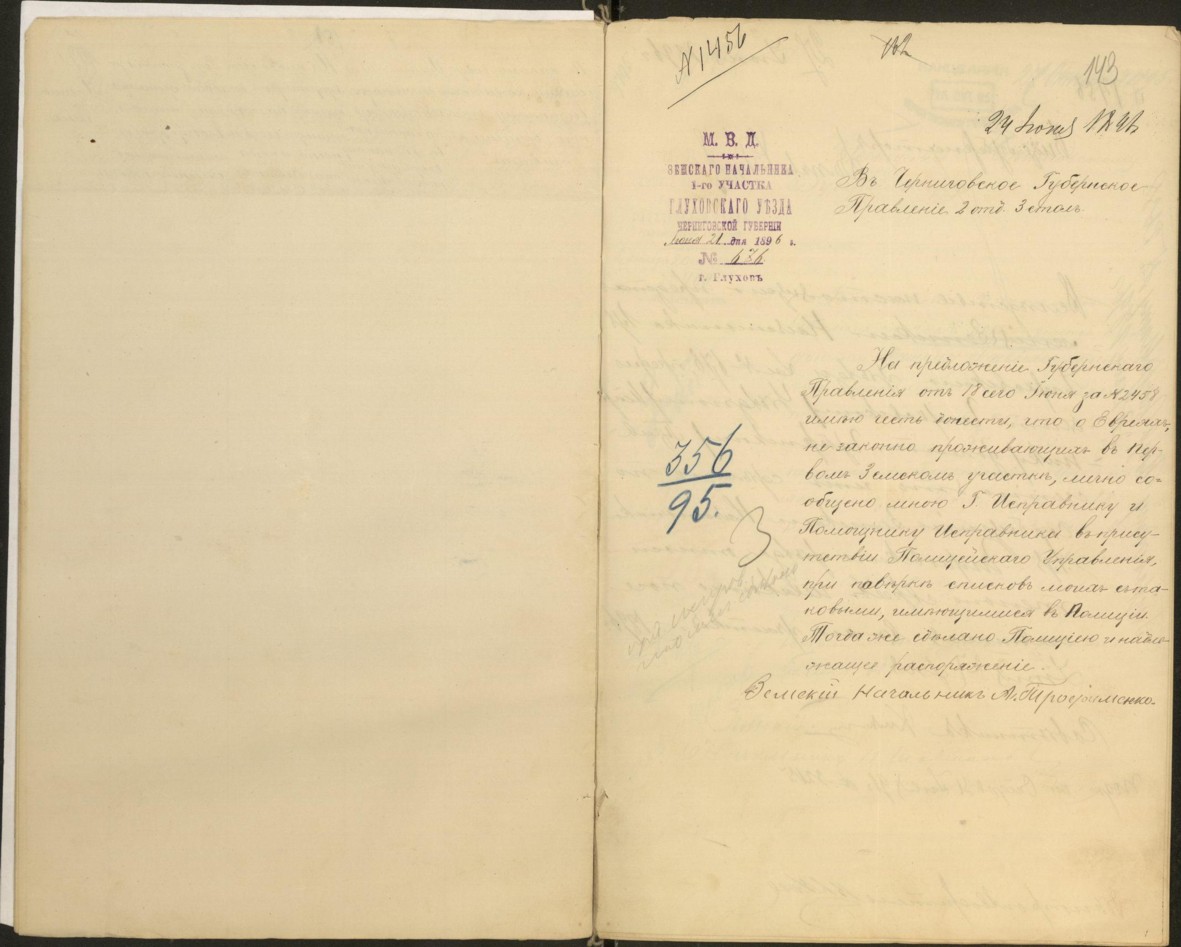 N 1456
143
24 Июня 1896
М. В. Д.
ЗЕМСКАГО НАЧАЛЬНИКА
1-го УЧАСТКА
ГЛУХОВСКАГО УѢЗДА
ЧЕРНИГОВСКОЙ ГУБЕРНІИ
Июня 21 дня 1896 г.
№ 636
г. Глуховъ
Въ Черниговское Губернское
Правленіе 2 отд. 3 столъ
На предложеніе Губернскаго
Правленія отъ 18 сего Іюня за N 2458
имѣю честь донести, что о Евреяхъ,
не законно проживающихъ въ Пер-
вомъ Земскомъ участкѣ, лично со-
общено мною Г. Исправнику и
Помощнику Исправника въ присут-
тствіи Полицейскаго Управленія,
при повѣркѣ списковъ моихъ съ та-
ковыми, имѣющимися въ Полиціи.
Тогда же сдѣлано Полиціею и надле-
жащее распоряженіе.
Земскій Начальникъ А. Трофименко.
356
95.